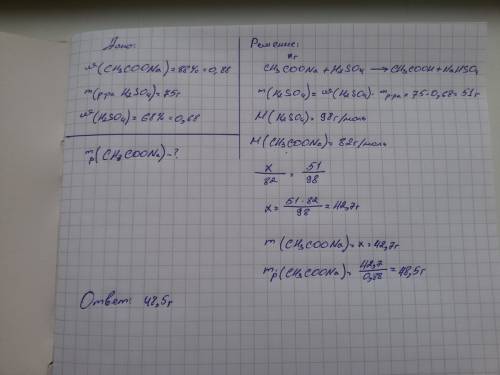 Дано:
ω(CH₃COONa)=88%=0,88
m(р-ра H₂SO₄)=75г
ω(H₂SO₄)=68%=0,68
mр(CH₃COONa)-?
Ответ: 48,5г
Решение:
xг
CH₃COONa + H₂SO₄ → CH₃COOH + NaHSO₄
m(H₂SO₄)=ω(H₂SO₄)· mр-ра = 75·0,68=51г
M(H₂SO₄)=98г/моль
M(CH₃COONa)=82г/моль
x/82 = 51/98
x= 51·82/98 =42,7г
m(CH₃COONa)=x=42,7г
mр(CH₃COONa)= 42,7/0,88 =48,5г